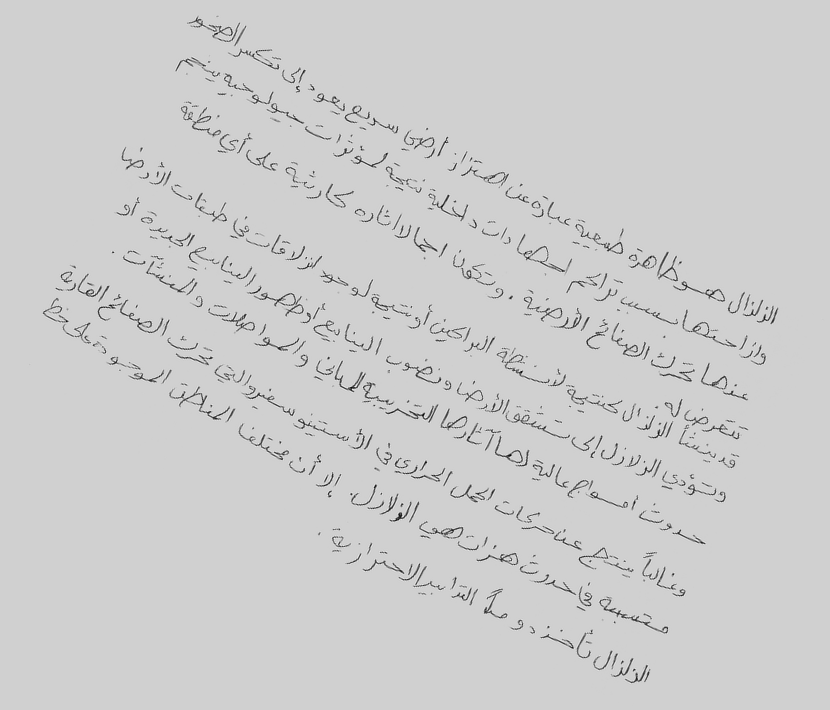 الزلزال هو ظاهرة طبعية عبارة عن اهتزاز أرضي سريع يعود إلى تكسر الصخور
وإزاحتها بسبب تراكم اجهادات داخلية نتيجة لمؤثرات جيولوجية ينجم
عنها تحرك الصفائح الأرضية . وتكون اجمالا اثاره كارثية على أي منطقة
تتعرض له
قد ينشأ الزلزال كنتيجة لأنشطة البراكين أو نتيجة لوجود انزلاقات في طبقات الأرض
وتؤدي الزلازل إلى تشقق الأرض ونضوب الينابيع أو ظهور الينابيع الجديدة أو
حدوث أمواج عالية لها آثارها التخريبية للمباني والمواصلات والمنشآت .
وغالباً ينتج عن حركات الحمل الحراري في الأستينوسفير والتي تحرك الصفائح القارية
متسببة في حدوث هزات هي الزلازل . إلا أن مختلف المناطق الموجودة على خط
الزلزال تأخذ دوماً التدابير الاحترازية .